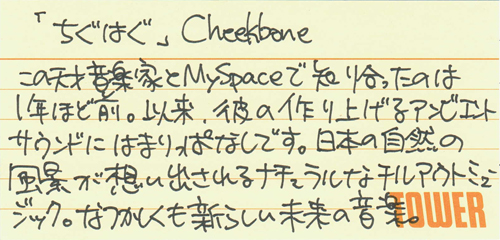 「ちぐはぐ」 Cheekbone
この天才音楽家とMySpaceで知り合ったのは
1年ほど前。以来、彼の作り上げるアンビエント
サウンドにはまりっぱなしです。日本の自然の
風景が想い出されるナチュラルなチルアウトミュー
ジック。なつかしくも新らしい未来の音楽。
TOWER